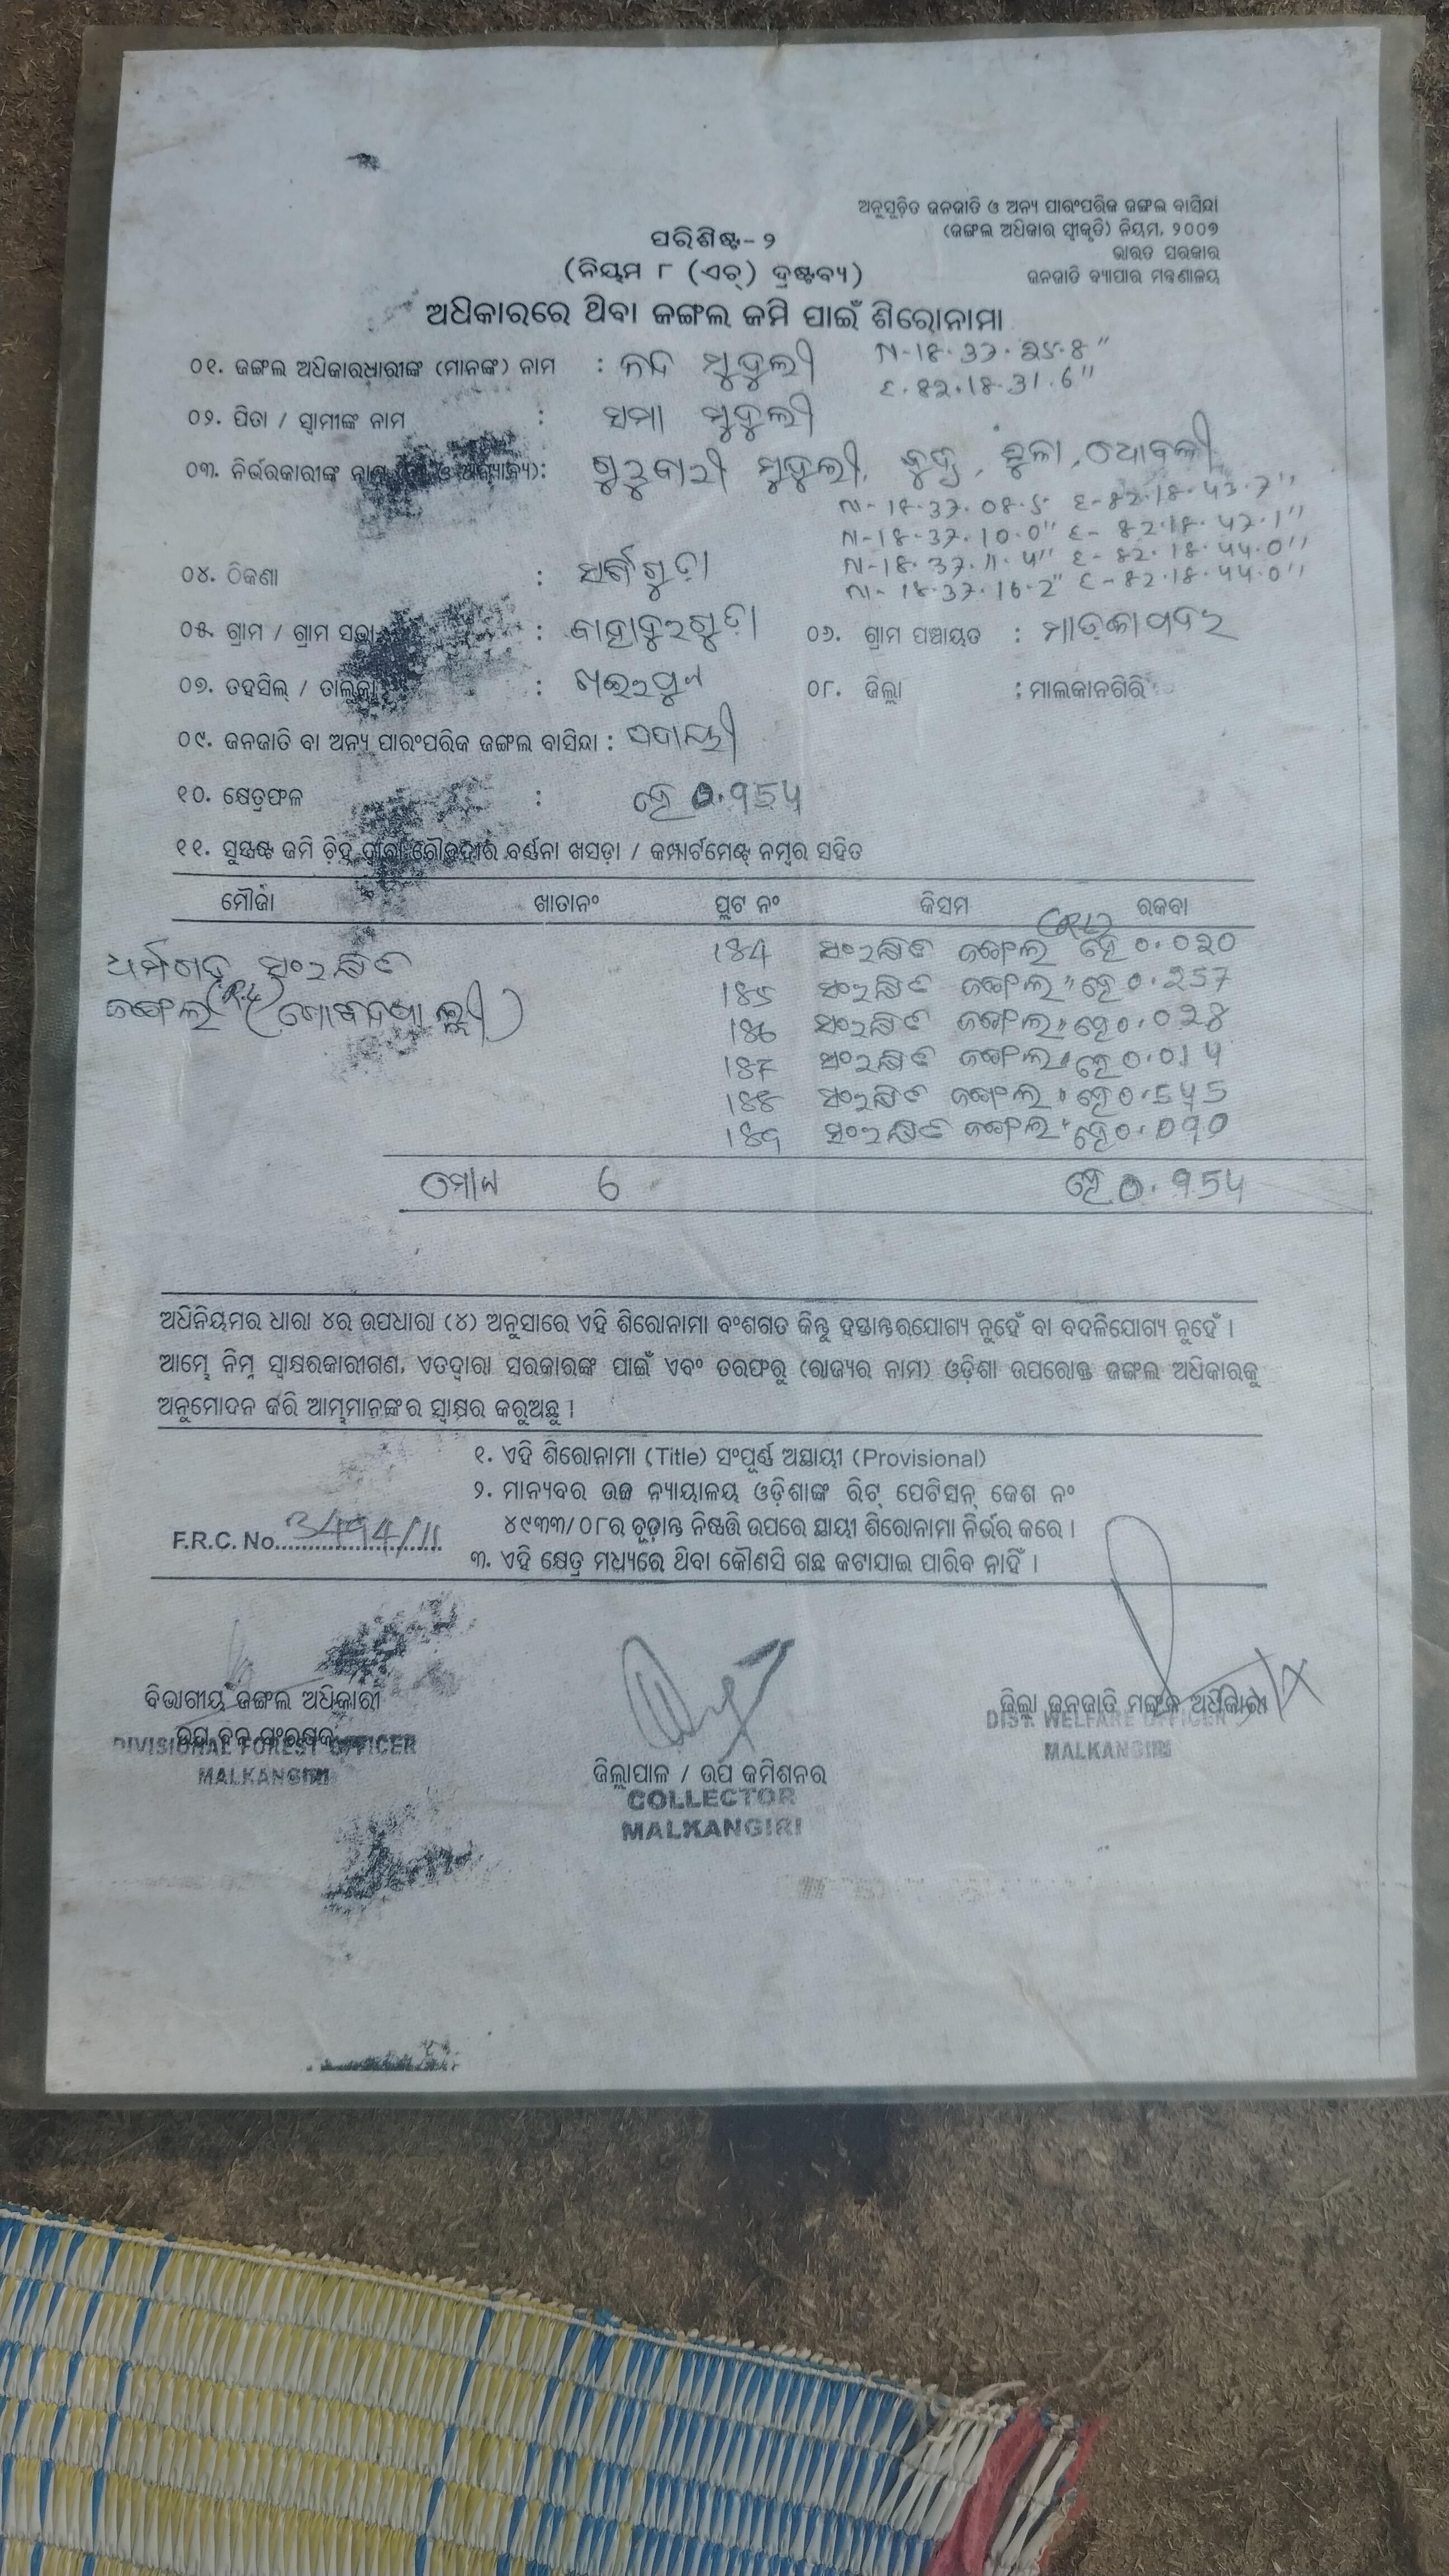 ଅନୁସୂଚିତ ଜନଜାତି ଓ ଅନ୍ୟ ପାରଂପରିକ ଜଙ୍ଗଲ ବାସିନ୍ଦା
(ଜଙ୍ଗଲ ଅଧିକାର ସ୍ୱୀକୃତି) ନିୟମ, ୨୦୦୭
ଭାରତ ସରକାର
ଜନଜାତି ବ୍ୟାପାର ମନ୍ତ୍ରଣାଳୟ
ପରିଶିଷ୍ଟ - ୨
(ନିୟମ ୮ (ଏଚ୍) ଦ୍ରଷ୍ଟବ୍ୟ)
ଅଧିକାରରେ ଥିବା ଜଙ୍ଗଲ ଜମି ପାଇଁ ଶିରୋନାମା
୦୧. ଜଙ୍ଗଲ ଅଧିକାରଧାରୀଙ୍କ (ମାନଙ୍କ) ନାମ : ମୁଦୁଲୀ
E. 82.18.31.6"
୦୨. ପିତା / ସ୍ୱାମୀଙ୍କ ନାମ : ସମା ମୁଦୁଲୀ
୦୩. ନିର୍ଭରକାରୀଙ୍କ : ଗୁରୁବାରୀ ମୁଦୁଲୀ,
N-18.37.08.5 E-82.18.43.7"
N-18-37.10.0" E- 82.18.42.1"
N-18.37.11.4" E-82.18.44.0"
N-18.37.16.2" E-82.18.44.0"
୦୪. ଠିକଣା :
୦୫. ଗ୍ରାମ / ଗ୍ରାମ ସଭା : ବାହାଦୁରଗୁଡ଼ା ୦୬. ଗ୍ରାମ ପଞ୍ଚାୟତ : ମାଡ଼କାପଦର
୦୭. ତହସିଲ୍ / ତାଲୁକା : ଖଇରପୁଟ ୦୮. ଜିଲ୍ଲା : ମାଲକାନଗିରି
୦୯. ଜନଜାତି ବା ଅନ୍ୟ ପାରଂପରିକ ଜଙ୍ଗଲ ବାସିନ୍ଦା :
୧୦. କ୍ଷେତ୍ରଫଳ : ହେ 0.954
୧୧. ସୁସ୍ପଷ୍ଟ ଜମି ଚିହ୍ନ ଦ୍ୱାରା ଚୌହଦୀର ବର୍ଣ୍ଣନା ଖସଡ଼ା / କମ୍ପାର୍ଟମେଣ୍ଟ ନମ୍ବର ସହିତ
ମୌଜା ଖାତାନଂ ପ୍ଲଟ ନଂ କିସମ ରକବା
ଧର୍ମଗଡ଼ ସଂରକ୍ଷିତ 184 ସଂରକ୍ଷିତ ଜଙ୍ଗଲ ହେ 0.020
ଜଙ୍ଗଲ 185 ସଂରକ୍ଷିତ ଜଙ୍ଗଲ " ହେ 0.257
186 ସଂରକ୍ଷିତ ଜଙ୍ଗଲ " ହେ 0.028
187 ସଂରକ୍ଷିତ ଜଙ୍ଗଲ " ହେ 0.014
188 ସଂରକ୍ଷିତ ଜଙ୍ଗଲ " ହେ 0.545
189 ସଂରକ୍ଷିତ ଜଙ୍ଗଲ " ହେ 0.090
ମୋଟ 6 ହେ 0.954
ଅଧିନିୟମର ଧାରା ୪ର ଉପଧାରା (୪) ଅନୁସାରେ ଏହି ଶିରୋନାମା ବଂଶଗତ କିନ୍ତୁ ହସ୍ତାନ୍ତରଯୋଗ୍ୟ ନୁହେଁ ବା ବଦଳିଯୋଗ୍ୟ ନୁହେଁ ।
ଆମ୍ଭେ ନିମ୍ନ ସ୍ୱାକ୍ଷରକାରୀଗଣ, ଏତଦ୍ୱାରା ସରକାରଙ୍କ ପାଇଁ ଏବଂ ତରଫରୁ (ରାଜ୍ୟର ନାମ) ଓଡ଼ିଶା ଉପରୋକ୍ତ ଜଙ୍ଗଲ ଅଧିକାରକୁ
ଅନୁମୋଦନ କରି ଆମ୍ଭମାନଙ୍କର ସ୍ୱାକ୍ଷର କରୁଅଛୁ ।
୧. ଏହି ଶିରୋନାମା (Title) ସଂପୂର୍ଣ୍ଣ ଅସ୍ଥାୟୀ (Provisional)
୨. ମାନ୍ୟବର ଉଚ୍ଚ ନ୍ୟାୟାଳୟ ଓଡ଼ିଶାଙ୍କ ରିଟ୍ ପେଟିସନ୍ କେଶ ନଂ
୪୯୩୩/୦୮ର ଚୂଡ଼ାନ୍ତ ନିଷ୍ପତ୍ତି ଉପରେ ସ୍ଥାୟୀ ଶିରୋନାମା ନିର୍ଭର କରେ ।
F.R.C. No. 3494/11
୩. ଏହି କ୍ଷେତ୍ର ମଧ୍ୟରେ ଥିବା କୌଣସି ଗଛ କଟାଯାଇ ପାରିବ ନାହିଁ ।
ବିଭାଗୀୟ ଜଙ୍ଗଲ ଅଧିକାରୀ
ଉପ ବନ ସଂରକ୍ଷକ
DIVISIONAL FOREST OFFICER
MALKANGIRI
ଜିଲ୍ଲାପାଳ / ଉପ କମିଶନର
COLLECTOR
MALKANGIRI
ଜିଲ୍ଲା ଜନଜାତି ମଙ୍ଗଳ ଅଧିକାରୀ
DIST. WELFARE OFFICER
MALKANGIRI